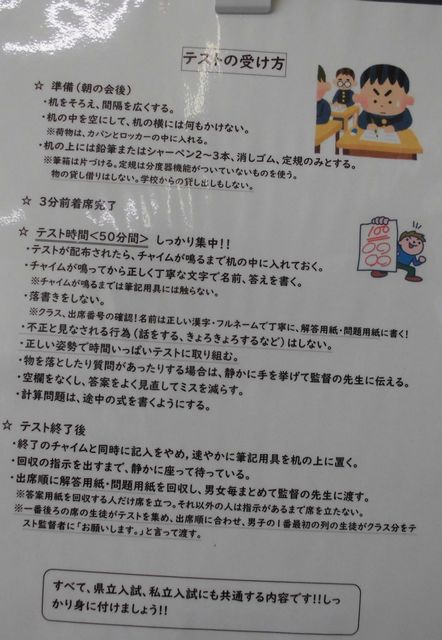 テストの受け方
☆ 準備(朝の会後)
・机をそろえ、間隔を広くする。
・机の中を空にして、机の横には何もかけない。
※荷物は、カバンとロッカーの中に入れる。
・机の上には鉛筆またはシャーペン2~3本、消しゴム、定規のみとする。
※筆箱は片づける。定規は分度器機能がついていないものを使う。
物の貸し借りはしない。学校からの貸し出しもしない。
☆ 3分前着席完了
☆ テスト時間<50分間> しっかり集中!!
・テストが配布されたら、チャイムが鳴るまで机の中に入れておく。
・チャイムが鳴ってから正しく丁寧な文字で名前、答えを書く。
※チャイムが鳴るまでは筆記用具には触らない。
・落書きをしない。
※クラス、出席番号の確認!名前は正しい漢字・フルネームで丁寧に、解答用紙・問題用紙に書く!
・不正と見なされる行為(話をする、きょろきょろするなど)はしない。
・正しい姿勢で時間いっぱいテストに取り組む。
・物を落としたり質問があったりする場合は、静かに手を挙げて監督の先生に伝える。
・空欄をなくし、答案をよく見直してミスを減らす。
・計算問題は、途中の式を書くようにする。
☆ テスト終了後
・終了のチャイムと同時に記入をやめ、速やかに筆記用具を机の上に置く。
・回収の指示を出すまで、静かに座って待っている。
・出席順に解答用紙・問題用紙を回収し、男女毎まとめて監督の先生に渡す。
※答案用紙を回収する人だけ席を立つ。それ以外の人は指示があるまで席を立たない。
※一番後ろの席の生徒がテストを集め、出席順に合わせ、男子の1番最初の列の生徒がクラス分をテ
スト監督者に「お願いします。」と言って渡す。
すべて、県立入試、私立入試にも共通する内容です!!しっ
かり身に付けましょう!!
100